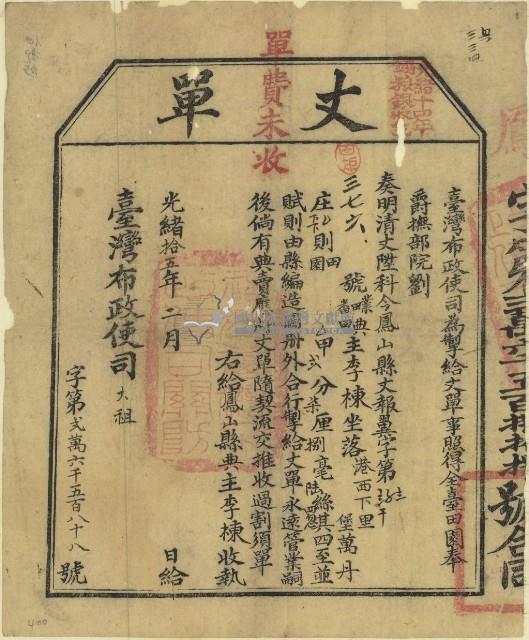 丈單
單費未收
臺灣布政使司為掣給丈單事照得全臺田園奉
爵撫部院劉
奏明清丈陞科今鳳山縣丈報翼字第
三七六號
典主李棟坐落港西下里
堡萬丹
庄下則田園
甲弐分柒厘捌毫陸絲
其四至並
賦則由縣編造圖冊外合行掣給丈單永遠管業嗣
後倘有典賣應將丈單隨契流交推收過割須單
右給鳳山縣典主李棟收執
光緒拾五年二月
日給
臺灣布政使司大租
字第弐萬六千五百八十八號
號合同
400